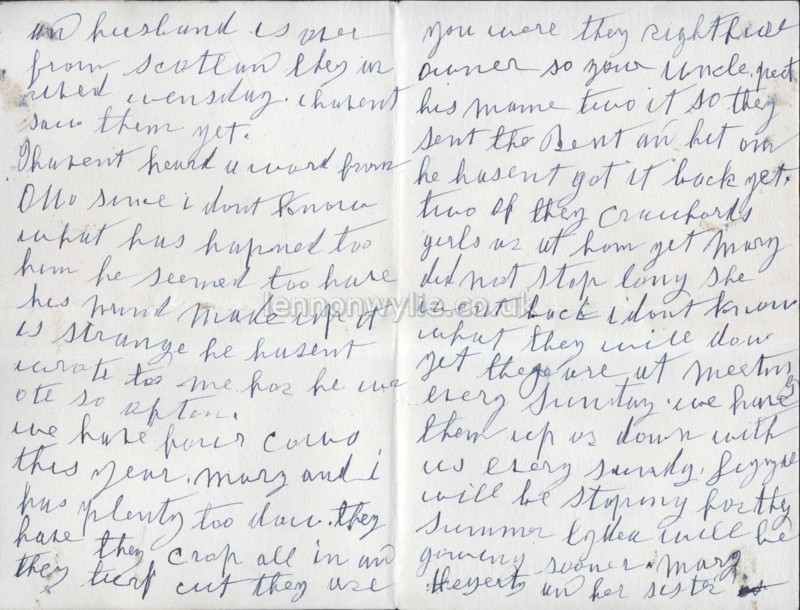 an husband is over
from Scotlan they ar
rived wensday. i havent
saw them yet.
I havent heard a word from
Otto since i dont know
what has hapned too
him he seemed too have
his mind made up it
is strange he hasent
wrote too me for he wr
ote so often.
we have four cows
this year. Mary and i
has plenty too dow. they
have they crop all in an
they turf cut they are
you were they rightfull
owner so your uncle
his mame two it so they
sent the Rent an
he hasent got it back yet.
two of they Crawfords
girls is at hom yet Mary
did not stop long she
went back i dont know
what they will dow
yet they are at meeting
every Sunday. we have
them up as down with
us every sundy.
will be stoping for they
summer Lydea will be
gowing sooner. Mary
an her sister is
lennonwylie.co.uk